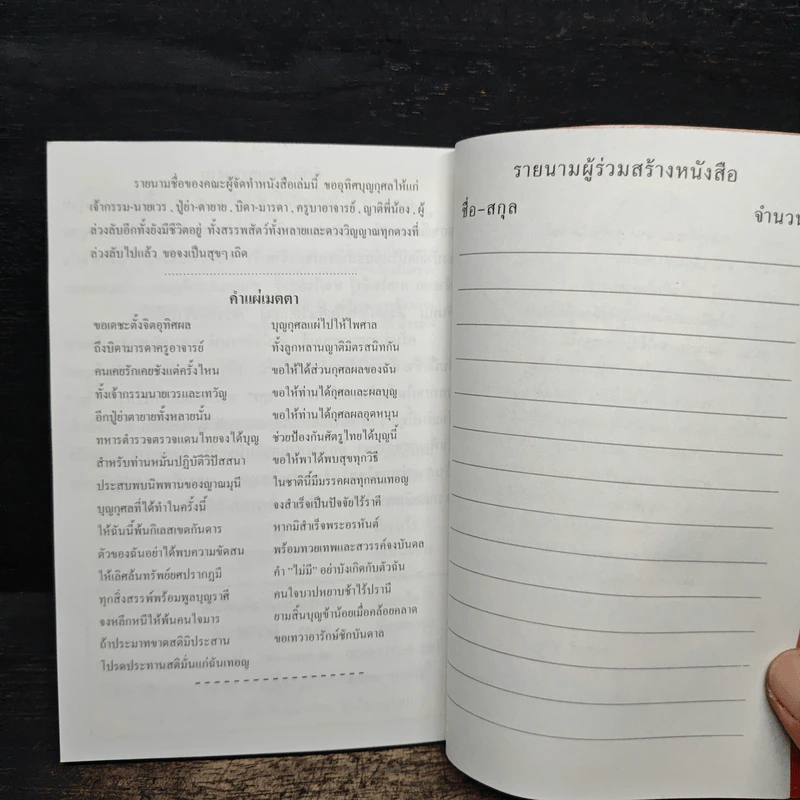 รายนามชื่อของคณะผู้จัดทำหนังสือเล่มนี้ ขออุทิศบุญกุศลให้แก่
เจ้ากรรม-นายเวร , ปู่ย่า-ตายาย , บิดา-มารดา , ครูบาอาจารย์ , ญาติพี่น้อง , ผู้
ล่วงลับอีกทั้งยังมีชีวิตอยู่ ทั้งสรรพสัตว์ทั้งหลายและดวงวิญญาณทุกดวงที่
ล่วงลับไปแล้ว ขอจงเป็นสุขๆ เถิด
คำแผ่เมตตา
ขอเดชะตั้งจิตอุทิศผล บุญกุศลแผ่ไปให้ไพศาล
ถึงบิดามารดาครูอาจารย์ ทั้งลูกหลานญาติมิตรสนิทกัน
คนเคยรักเคยชังแต่ครั้งไหน ขอให้ได้ส่วนกุศลผลของฉัน
ทั้งเจ้ากรรมนายเวรและเทวัญ ขอให้ท่านได้กุศลและผลบุญ
อีกปู่ย่าตายายทั้งหลายนั้น ขอให้ท่านได้กุศลผลอุดหนุน
ทหารตำรวจตรวจแดนไทยจงได้บุญ ช่วยป้องกันศัตรูไทยได้บุญนี้
สำหรับท่านหมั่นปฏิบัติวิปัสสนา ขอให้พาได้พบสุขทุกวิธี
ประสบพบนิพพานของญาณมุนี ในชาตินี้มีมรรคผลทุกคนเทอญ
บุญกุศลที่ได้ทำในครั้งนี้ จงสำเร็จเป็นปัจจัยไร้ราคี
ให้ฉันนี้พ้นกิเลสเขตกันดาร หากมิสำเร็จพระอรหันต์
ตัวของฉันอย่าได้พบความขัดสน พร้อมทวยเทพและสวรรค์จงบันดล
ให้เลิศล้นทรัพย์ยศปรากฏมี คำ "ไม่มี" อย่าบังเกิดกับตัวฉัน
ทุกสิ่งสรรพ์พร้อมพูลบุญราศี คนใจบาปหยาบช้าไร้ปรานี
จงหลีกหนีให้พ้นคนใจมาร ยามสิ้นบุญข้าน้อยเมื่อคล้อยคลาด
ถ้าประมาทขาดสติมิประสาน ขอเทวาอารักษ์ชักบันดาล
โปรดประทานสติมั่นแก่ฉันเทอญ
รายนามผู้ร่วมสร้างหนังสือ
ชื่อ-สกุล จำนวน